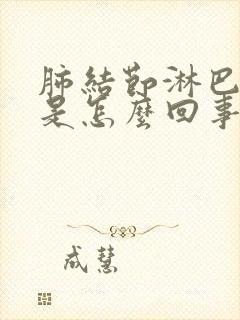 肺結節淋巴
是怎麼回事
成慧